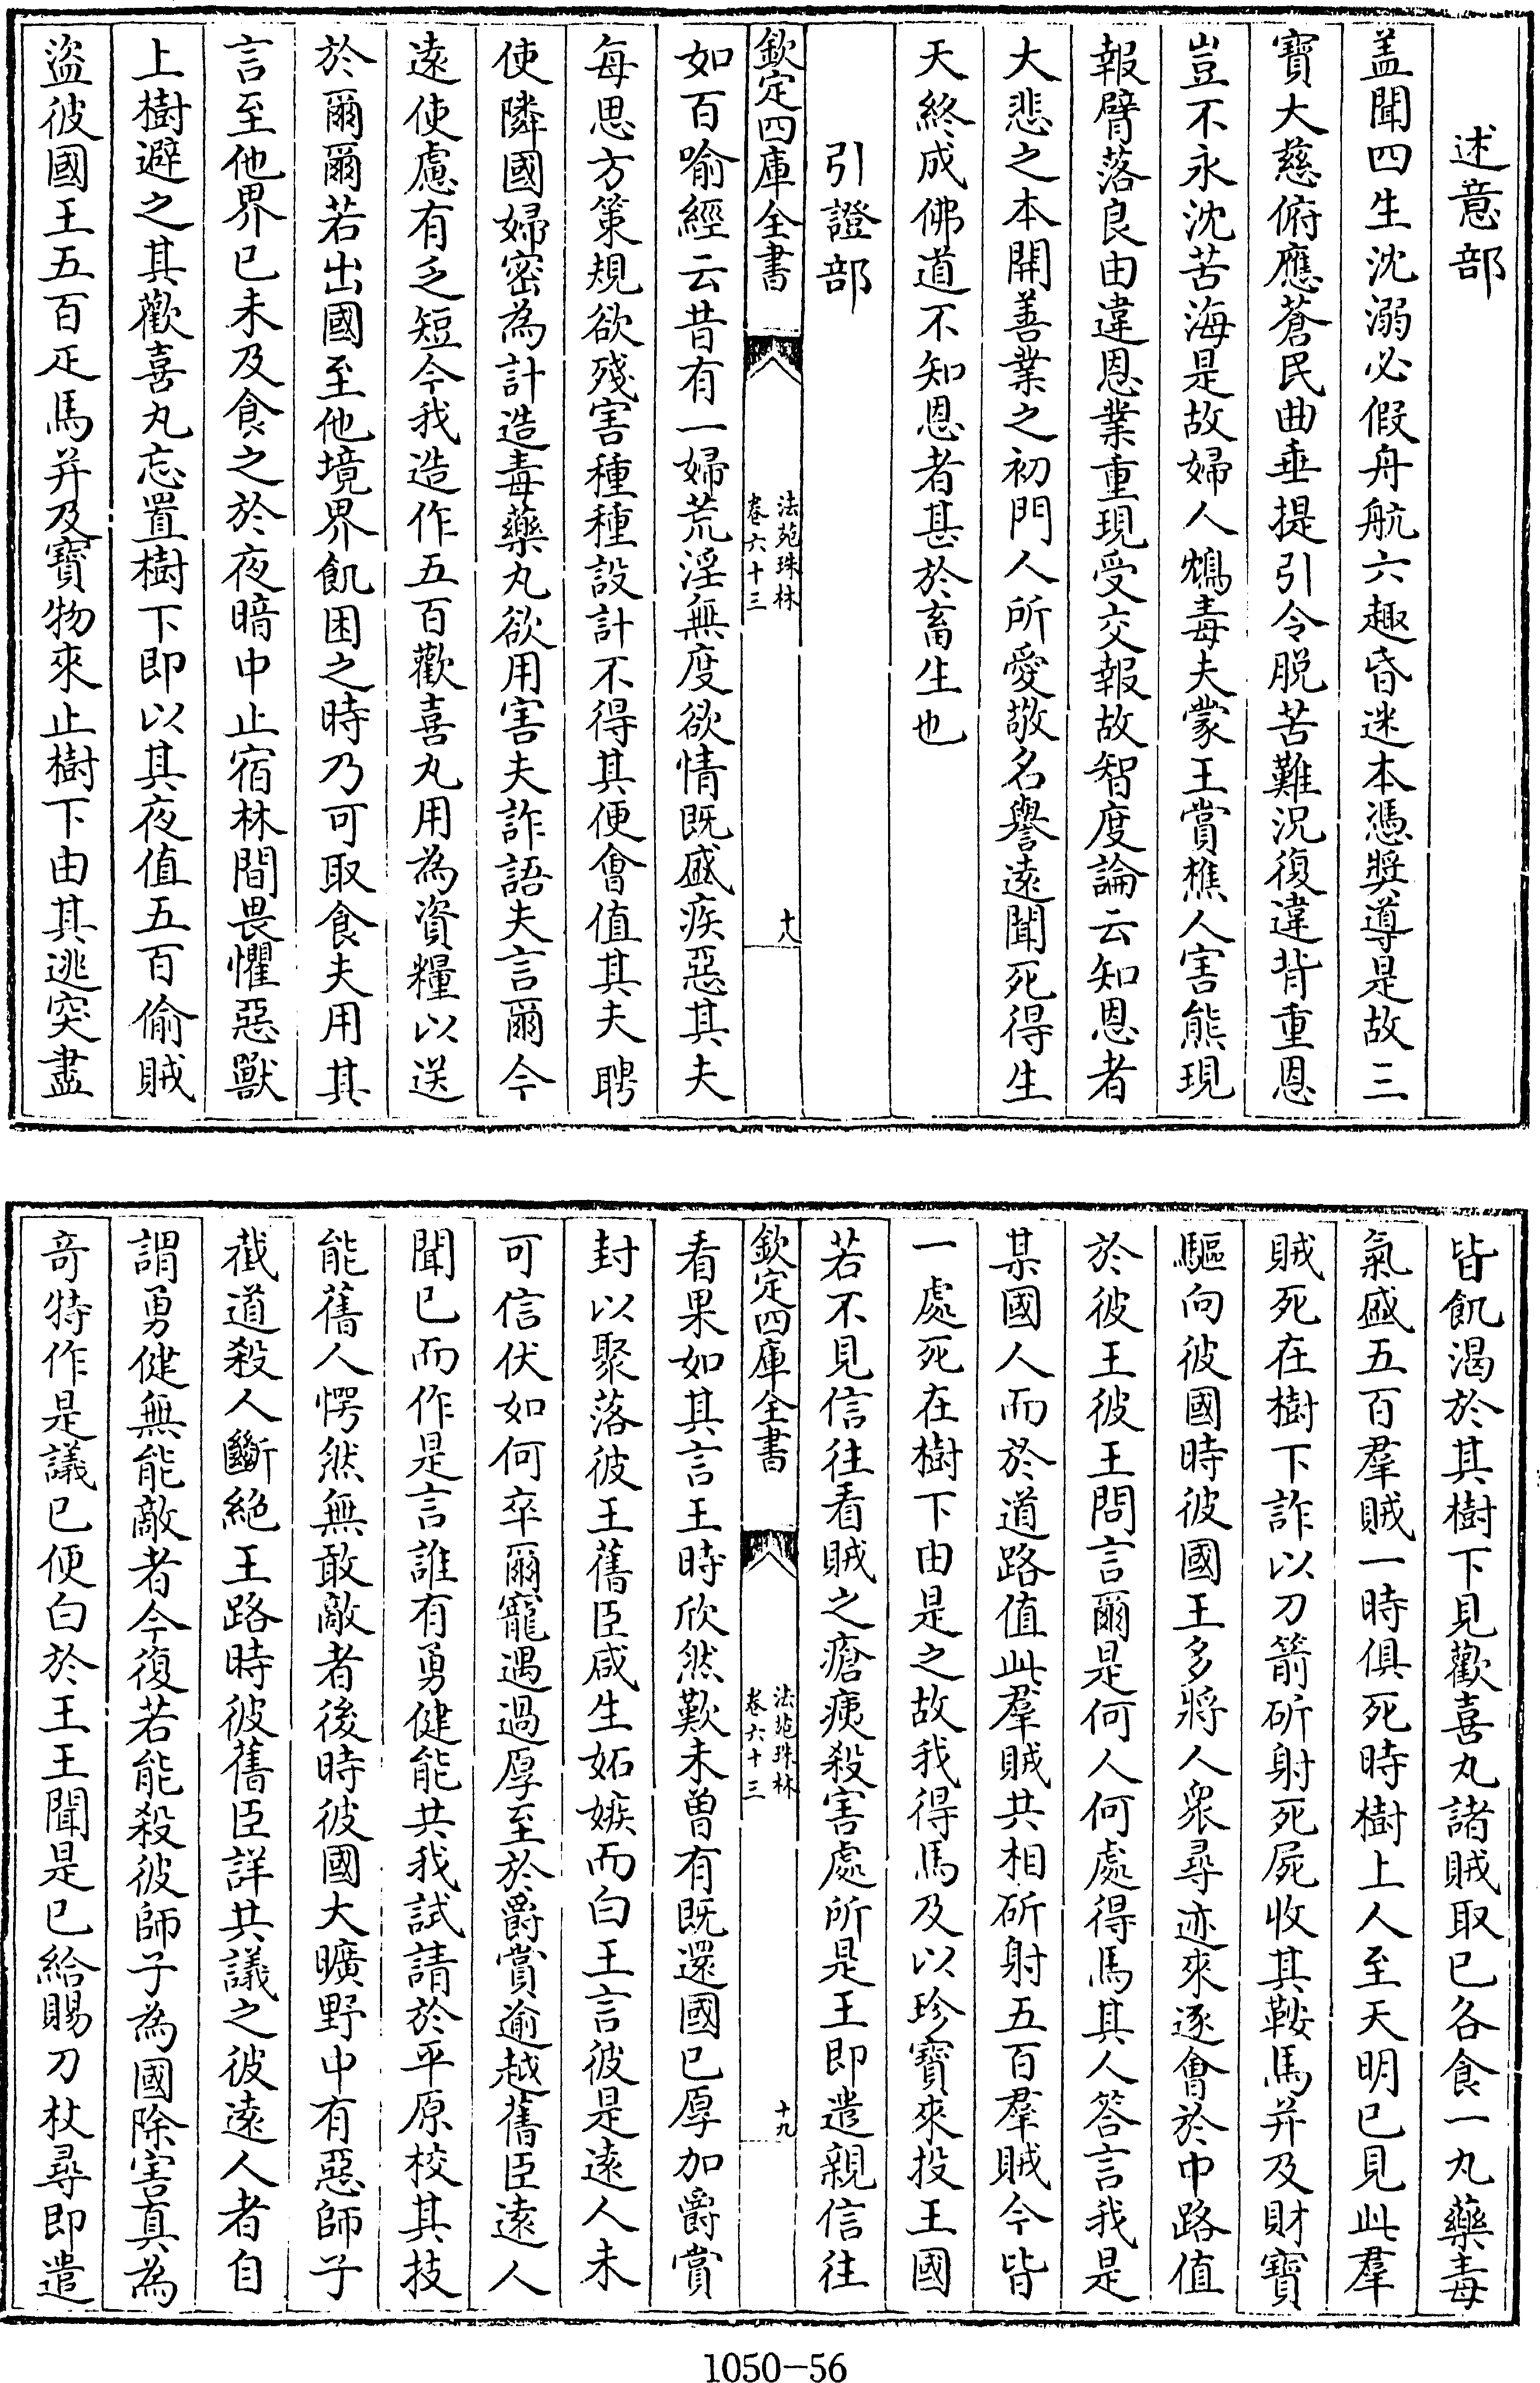 述意部
盖聞四生沈溺必假舟航六趣昏迷本憑奬導是故三
寶大慈俯應蒼民曲垂提引令脱苦難況復違背重恩
豈不永沈苦海是故婦人鴆毒夫蒙王賞樵人害熊現
報臂落良由違恩業重現受交報故智度論云知恩者
大悲之本開善業之初門人所愛敬名譽遠聞死得生
天終成佛道不知恩者甚於畜生也
引證部
欽定四庫全書
法苑珠林
卷六十三
十八
如百喻經云昔有一婦荒淫無度欲情既盛疾惡其夫
每思方策規欲殘害種種設計不得其便㑹值其夫聘
使隣國婦密為計造毒藥丸欲用害夫詐語夫言爾今
逺使慮有乏短今我造作五百歡喜丸用為資糧以送
於爾爾若出國至他境界飢困之時乃可取食夫用其
言至他界已未及食之於夜暗中止宿林間畏懼惡獸
上樹避之其歡喜丸忘置樹下即以其夜值五百偷賊
盜彼國王五百疋馬并及寶物來止樹下由其逃突盡
皆飢渴於其樹下見歡喜丸諸賊取已各食一丸藥毒
氣盛五百羣賊一時俱死時樹上人至天明已見此羣
賊死在樹下詐以刀箭斫射死屍收其鞍馬并及財寶
驅向彼國時彼國王多將人衆尋迹來逐㑹於中路值
於彼王彼王問言爾是何人何處得馬其人答言我是
某國人而於道路值此羣賊共相斫射五百羣賊今皆
一處死在樹下由是之故我得馬及以珍寶來投王國
若不見信往看賊之瘡痍殺害處所是王即遣親信往
欽定四庫全書
法苑珠林
卷六十三
十九
看果如其言王時欣然歎未曽有既還國已厚加爵賞
封以聚落彼王舊臣咸生妬嫉而白王言彼是逺人未
可信伏如何卒爾寵遇過厚至於爵賞逾越舊臣逺人
聞已而作是言誰有勇健能共我試請於平原校其技
能舊人愕然無敢敵者後時彼國大曠野中有惡師子
截道殺人斷絶王路時彼舊臣詳共議之彼逺人者自
謂勇健無能敵者今復若能殺彼師子為國除害真為
竒特作是議已便白於王王聞是已給賜刀杖尋即遣
1050-56